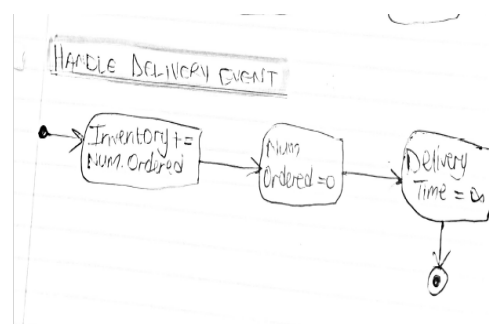 HANDLE DELIVERY EVENT
Inventory +=
Num. Ordered
Num
Ordered = 0
Delivery
Time = ∞